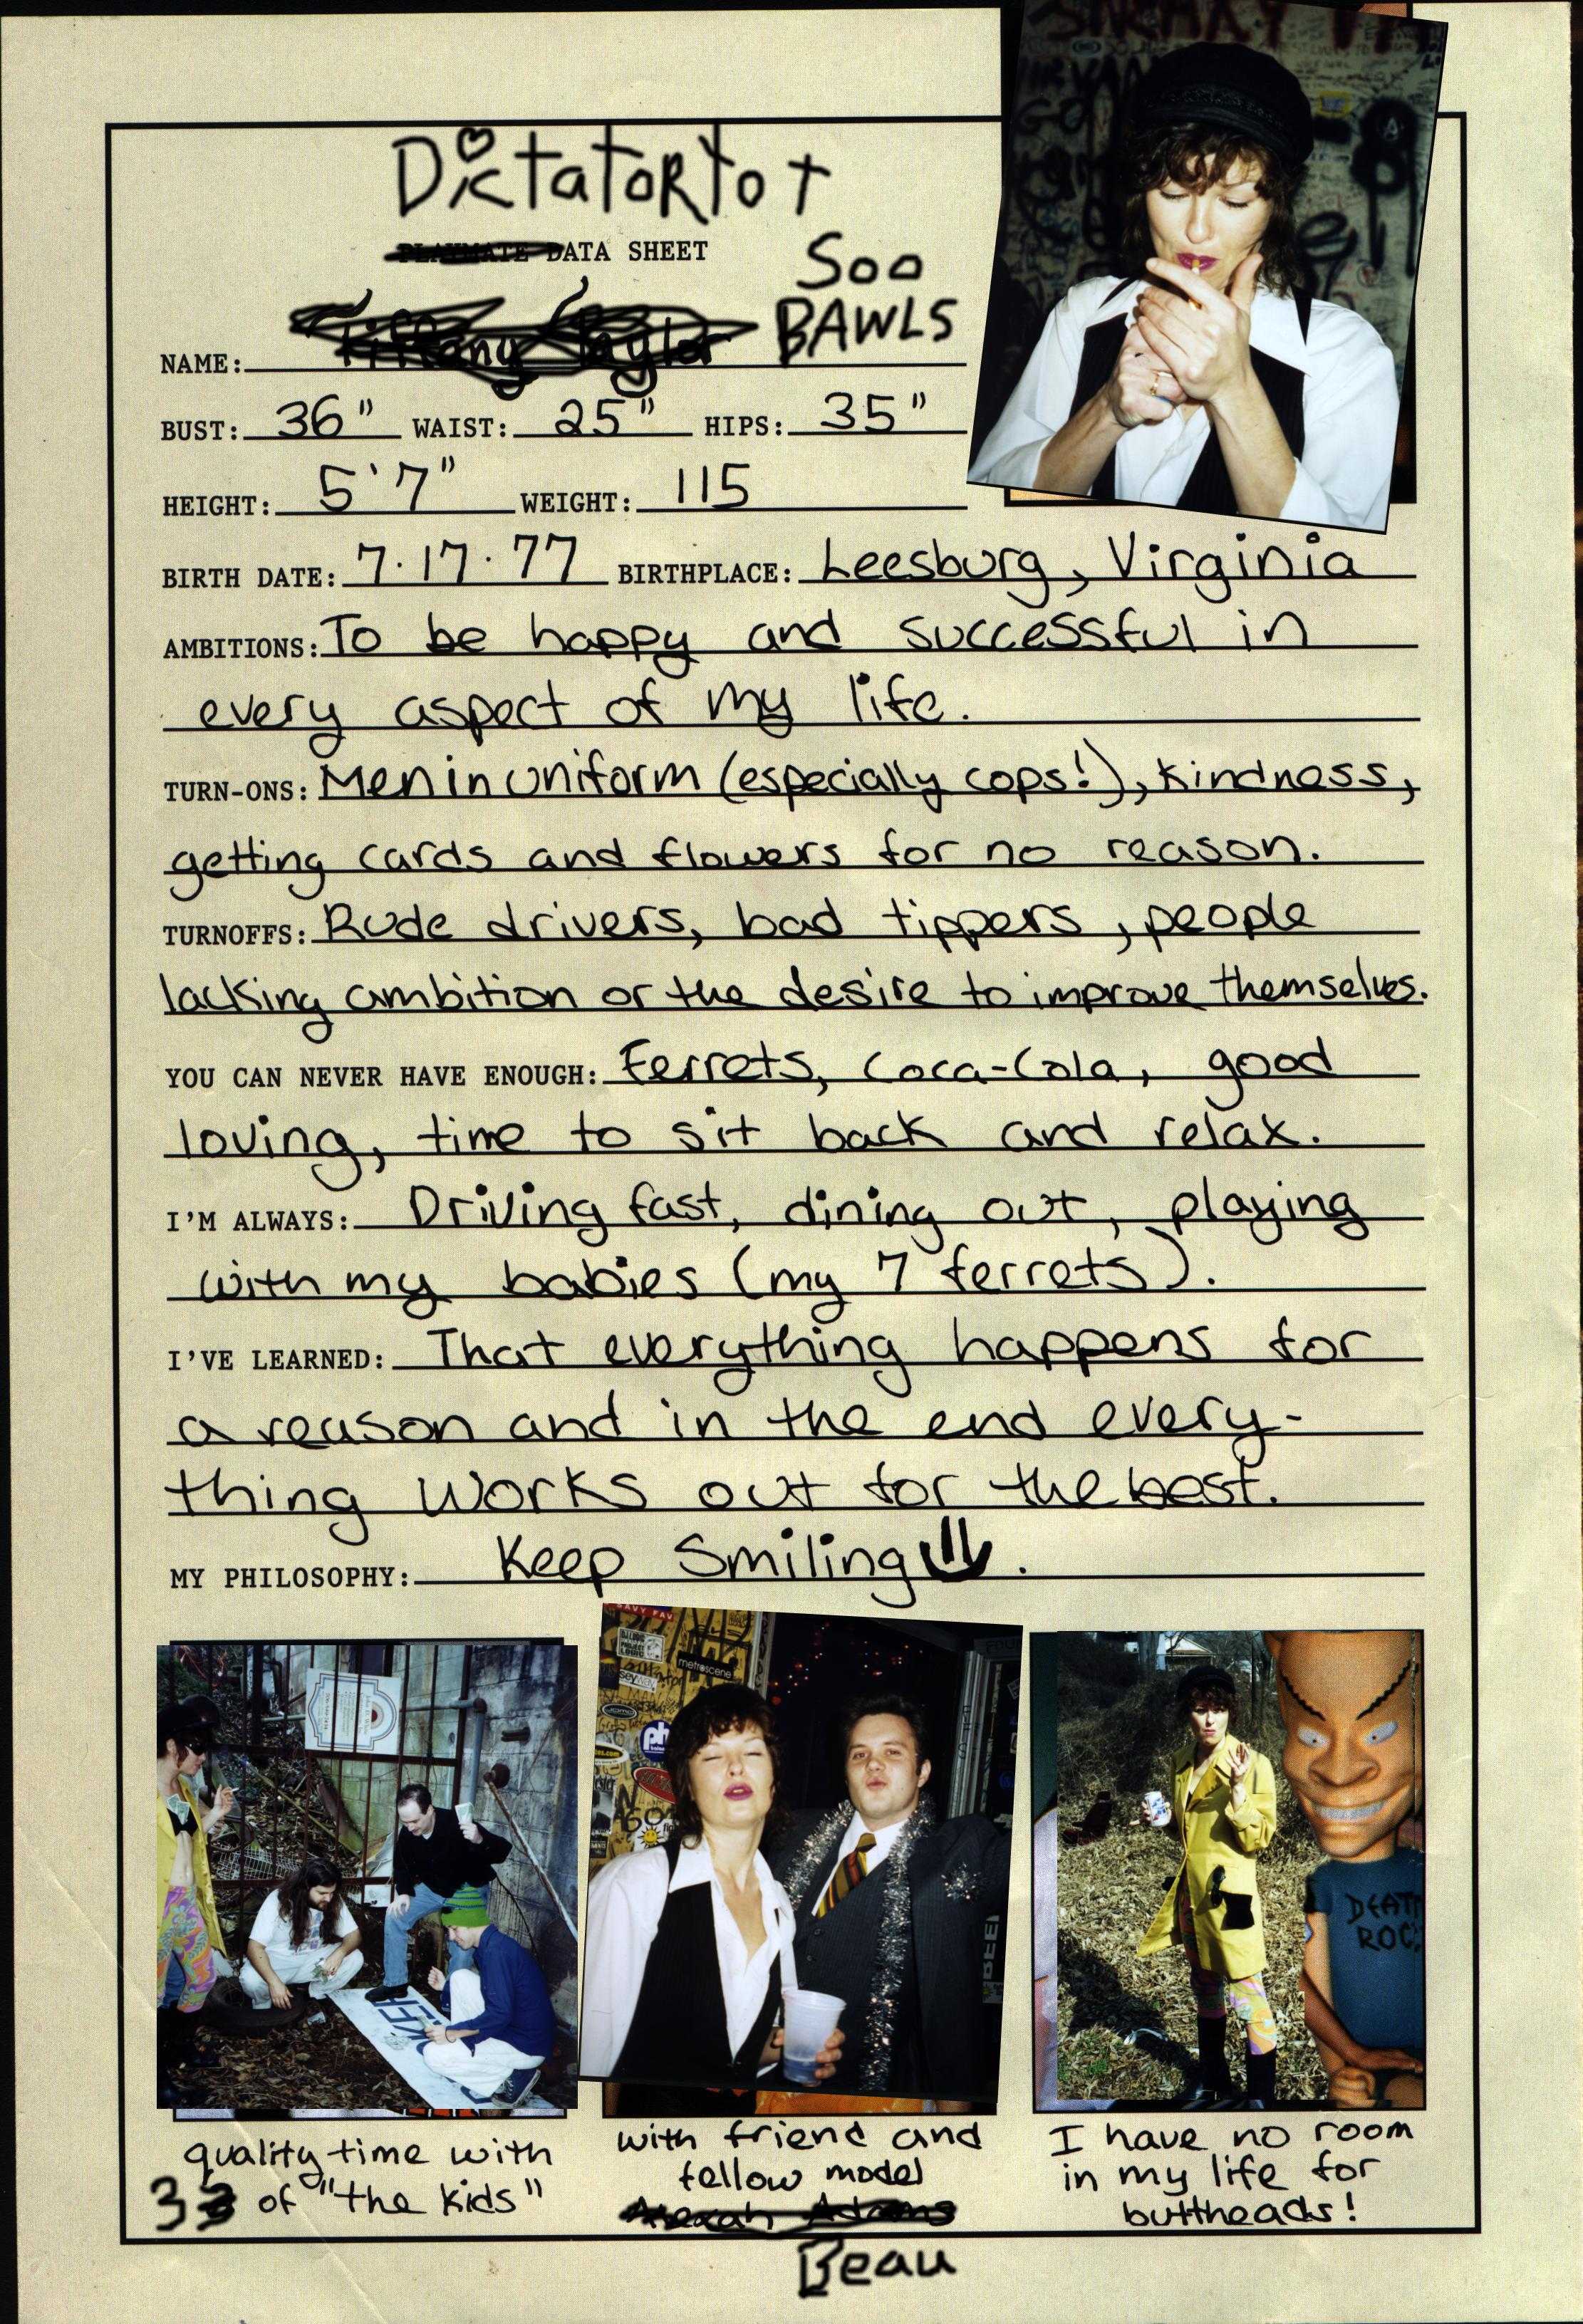 DictatorTot
PLAYMATE DATA SHEET
NAME: Tiffany Taylor Soo BAWLS
BUST: 36" WAIST: 25" HIPS: 35"
HEIGHT: 5'7" WEIGHT: 115
BIRTH DATE: 7.17.77 BIRTHPLACE: Leesburg, Virginia
AMBITIONS: To be happy and successful in
every aspect of my life.
TURN-ONS: Men in uniform (especially cops!), kindness,
getting cards and flowers for no reason.
TURNOFFS: Rude drivers, bad tippers, people
lacking ambition or the desire to improve themselves.
YOU CAN NEVER HAVE ENOUGH: Ferrets, Coca-Cola, good
loving, time to sit back and relax.
I'M ALWAYS: Driving fast, dining out, playing
with my babies (my 7 ferrets).
I'VE LEARNED: That everything happens for
a reason and in the end every-
thing works out for the best.
MY PHILOSOPHY: Keep Smiling .
metroscene
BEE
DEATH
ROC
quality time with
3 of "the kids"
with friend and
fellow model
Beau
I have no room
in my life for
buttheads!